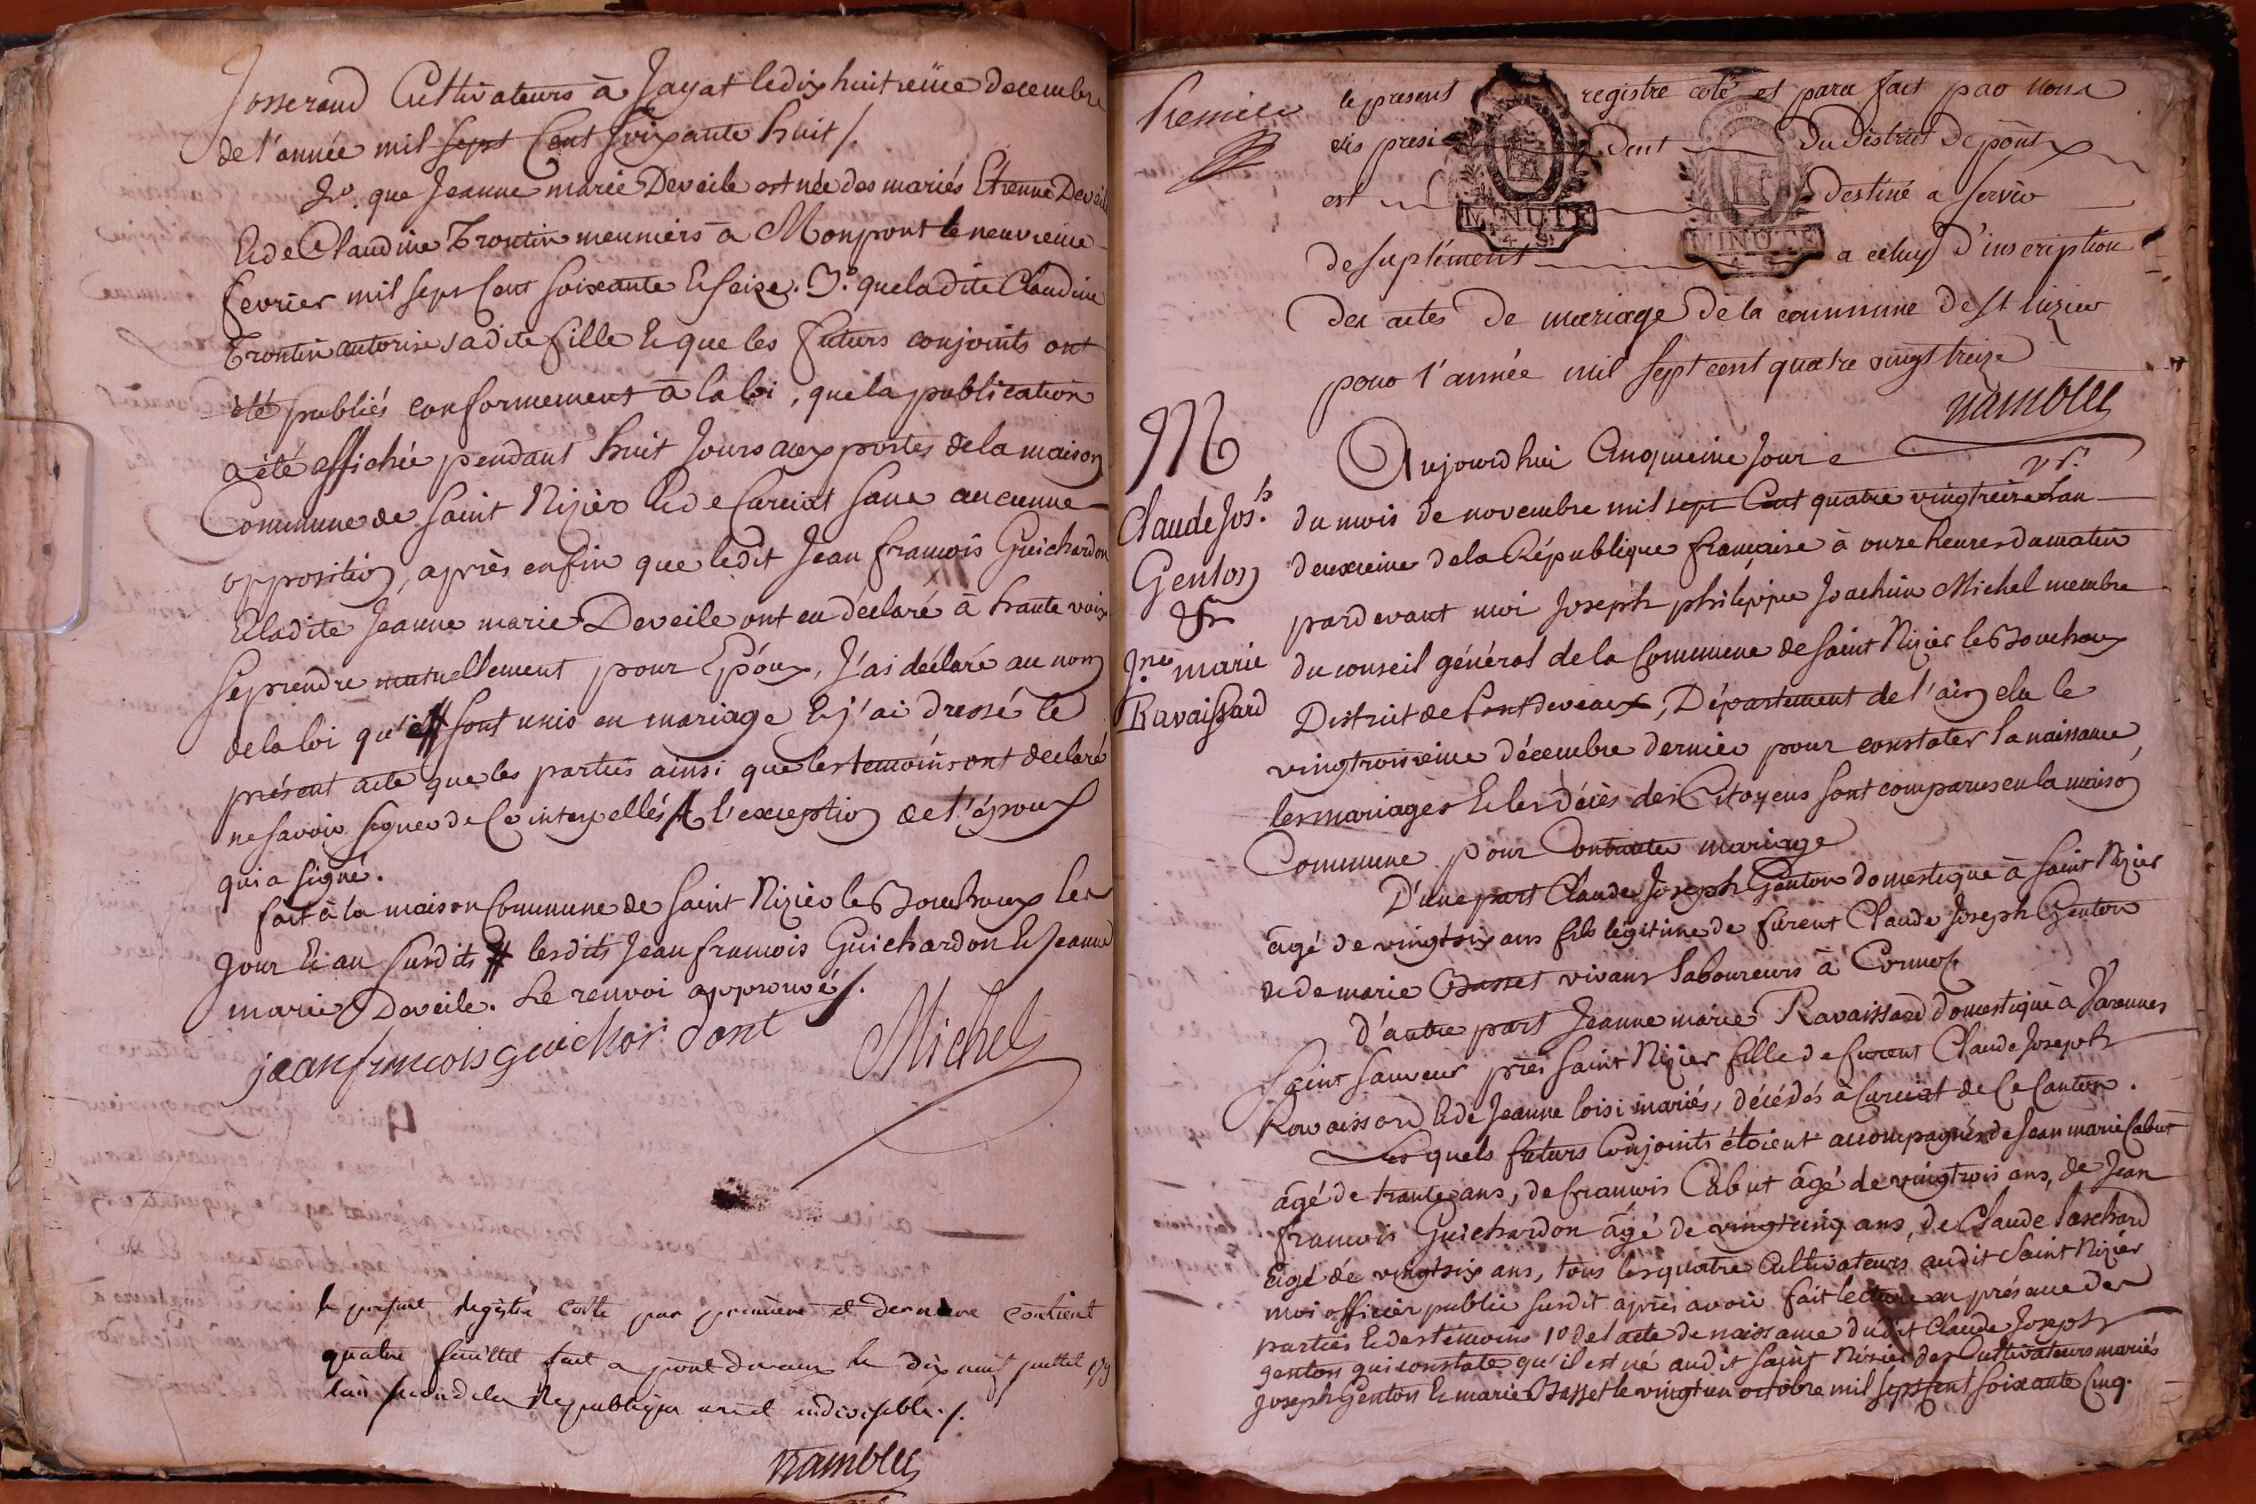 Josserand Cultivateurs à Jayat le dix huitieme decembre
de l'année mil sept Cent soixante huit /.
2°. que Jeanne marie Deveile est née des mariés Etienne Deveile
& de Claudine Trontin meuniers à Monpont le neuvieme
fevrier mil sept Cent soixante & seize. 3°. que ladite Claudine
Trontin autorise sadite fille & que les futurs conjoints ont
été publiés conformement à la loi, que la publication
a été affichée pendant huit Jours aux portes de la maison
Commune de Saint Nizier & de Curciat sans aucunne
opposition, après enfin que ledit Jean francois Guichardon
& ladite Jeanne marie Deveile ont eu déclaré à haute voix
se prendre mutuellement pour Epoux, J'ai déclaré au nom
de la loi qu'# sont unis en mariage & j'ai dressé le
présent acte que les parties ainsi que les temoins ont declaré
ne savoir signer de ce interpellés A l'exception de l'époux
qui a signé.
fait à la maison Commune de Saint Nizier le Bouchoux les
Jour & an susdits # lesdits Jean francois Guichardon & Jeanne
marie Deveile. Le renvoi approuvé /.
jean francois guichor dont
Michel
le present registre cotte par premiere et derniere contient
quatre feuillet fait a pont de vaux le dix neuf juillet
l'an second de la Republique une et indivisible ./.
rambles
Premier
le present registre coté et para fait par nous
vis presi dent du District de pont
est destiné a servir
de suplément a celuy d'inscription
MINUTE
MINUTE
des actes de mariage de la commune de st nizier
pour l'année mil sept cent quatre vingt treize
rambles
M
Claude Jos.h
Genton
&
J.ne marie
Ravaissard
Aujourd'hui Cinquieme Jour
du mois de novembre mil sept Cent quatre vingt treize L'an
deuxieme de la République française à onze heures du matin
pardevant moi Joseph philippe Joachim Michel membre
du conseil général de la Commune de Saint Nizier le Bouchoux
District de Pontdevaux, Département de l'ain elu le
vingtroisieme décembre dernier pour constater la naissance,
les mariages & les décès des Citoyens sont comparus en la maison
Commune pour Contracter mariage
D'une part Claude Joseph Genton domestique à Saint Nizier
âgé de vingtsix ans fils légitime de furent Claude Joseph Genton
& de marie Basset vivans laboureurs à Cormoz
D'autre part Jeanne marie Ravaissard domestique à Varennes
Saint Sauveur près Saint Nizier fille de furent Claude Joseph
Ravaissard & de Jeanne loisi mariés, décédés à Curciat de Ce Canton.
Lesquels futurs Conjoints étoient accompagnés de Jean marie Cabut
âgé de trante ans, de francois Cabut âgé de vingtrois ans, de Jean
francois Guichardon âgé de vingtcinq ans, de Claude Paschard
âgé de vingtsix ans, tous les quatre Cultivateurs audit Saint Nizier
moi officier public susdit après avoir fait lecture en présence des
parties & des témoins 1° de l'acte de naissance dudit Claude Joseph
genton qui constate qu'il est né audit Saint Nizier des Cultivateurs mariés
Joseph Genton & marie Basset le vingt un octobre mil sept Cent soixante Cinq.